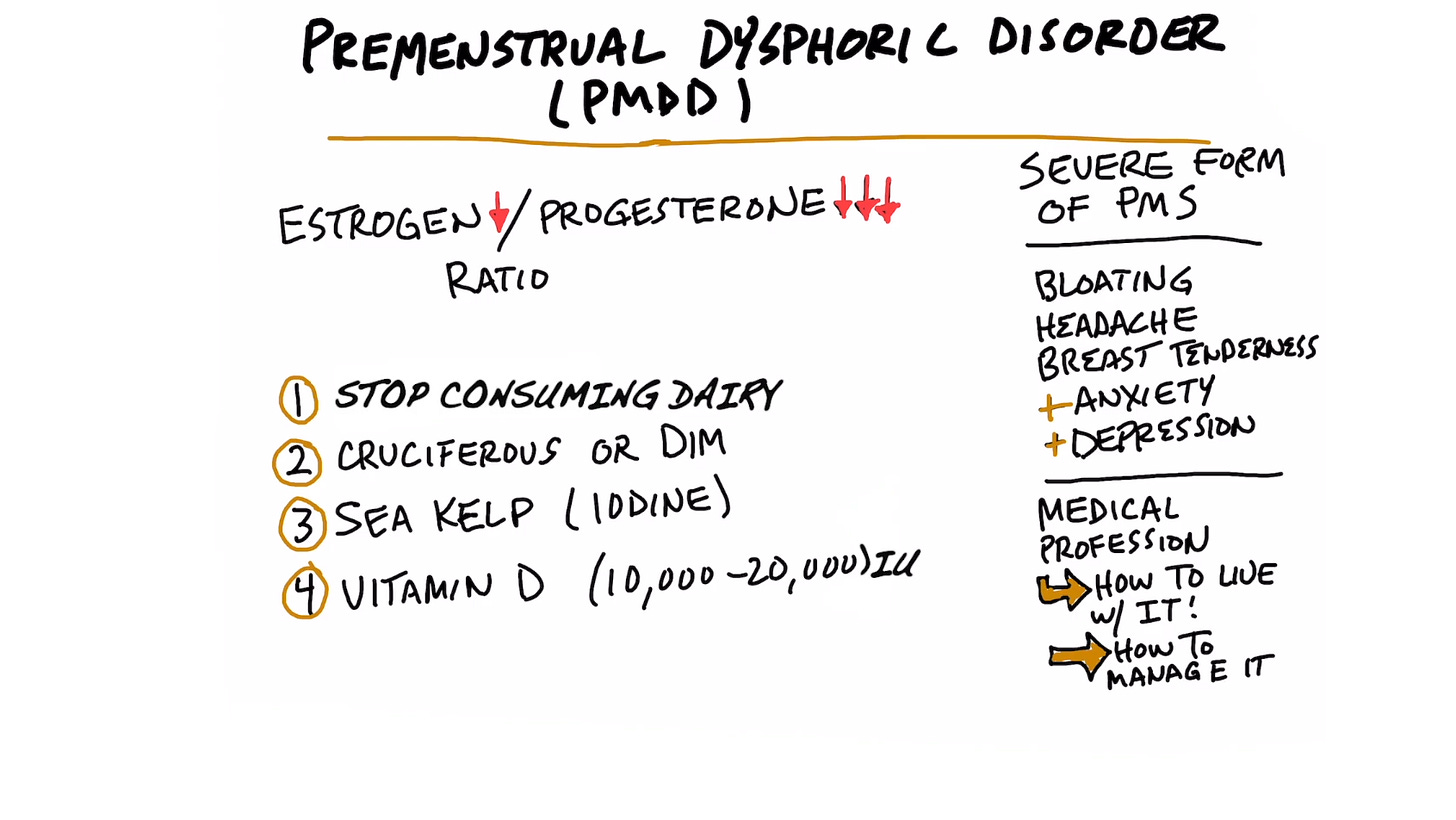 PREMENSTRUAL DYSPHORIC DISORDER
(PMDD)
ESTROGEN↓/PROGESTERONE↓↓↓
RATIO
1 STOP CONSUMING DAIRY
2 CRUCIFEROUS OR DIM
3 SEA KELP (IODINE)
4 VITAMIN D (10,000-20,000)IU
SEVERE FORM
OF PMS
BLOATING
HEADACHE
BREAST TENDERNESS
+ANXIETY
+DEPRESSION
MEDICAL
PROFESSION
HOW TO LIVE
W/ IT!
HOW TO
MANAGE IT